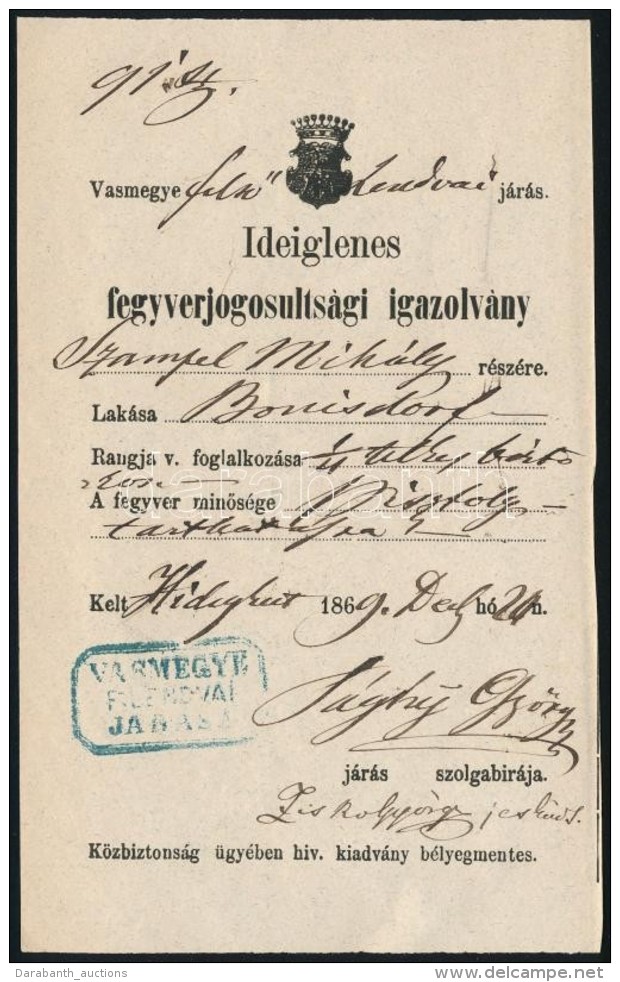 91 sz.
Vasmegye felső Lendvai járás.
Ideiglenes
fegyverjogosultsági igazolvány
Szampel Mihály részére.
Lakása Bonisdorf
Rangja v. foglalkozása telkes
A fegyver minősége 1 pisztoly
tarthatásra
Kelt Hidegkut 1869. Dec hó 20n.
VASMEGYE
F. LENDVAI
JÁRÁSA
Sághy György
járás szolgabirája.
Ziskó György jesküdt.
Közbiztonság ügyében hiv. kiadvány bélyegmentes.
darabanth
Darabanth_auctions
delcampe.net